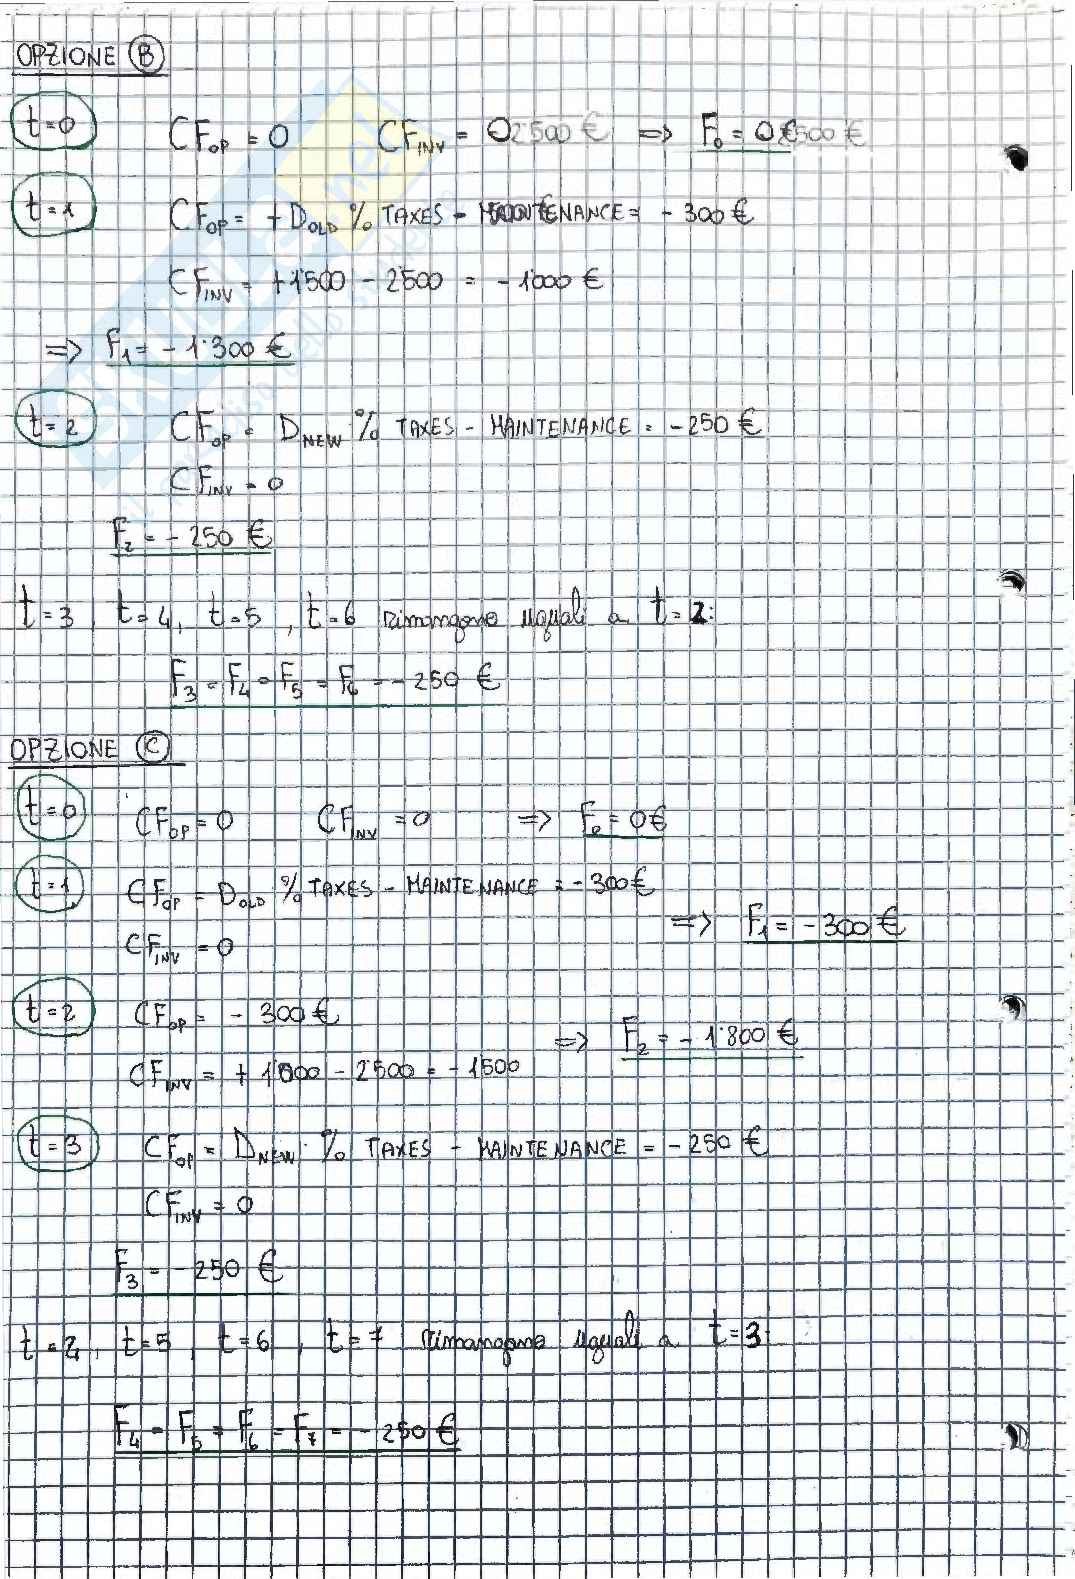 OPZIONE B
t=0 CF_OP = 0 CF_INV = 0 2500 € ⇒ F_0 = 0 € 500 €
t=1 CF_OP = + D_OLD % TAXES - MAINTENANCE = - 300 €
CF_INV = +1'500 - 2'500 = - 1'000 €
⇒ F_1 = - 1'300 €
t=2 CF_OP = D_NEW % TAXES - MAINTENANCE = -250 €
CF_INV = 0
F_2 = - 250 €
t=3, t=4, t=5, t=6 rimangono uguali a t=2:
F_3 = F_4 = F_5 = F_6 = - 250 €
OPZIONE C
t=0 CF_OP = 0 CF_INV = 0 ⇒ F_0 = 0 €
t=1 CF_OP = D_OLD % TAXES - MAINTENANCE = -300 €
⇒ F_1 = - 300 €
CF_INV = 0
t=2 CF_OP = - 300 €
⇒ F_2 = - 1'800 €
CF_INV = + 1'000 - 2'500 = - 1500
t=3 CF_OP = D_NEW % TAXES - MAINTENANCE = - 250 €
CF_INV = 0
F_3 = - 250 €
t=4, t=5, t=6, t=7 rimangono uguali a t=3
F_4 = F_5 = F_6 = F_7 = - 250 €